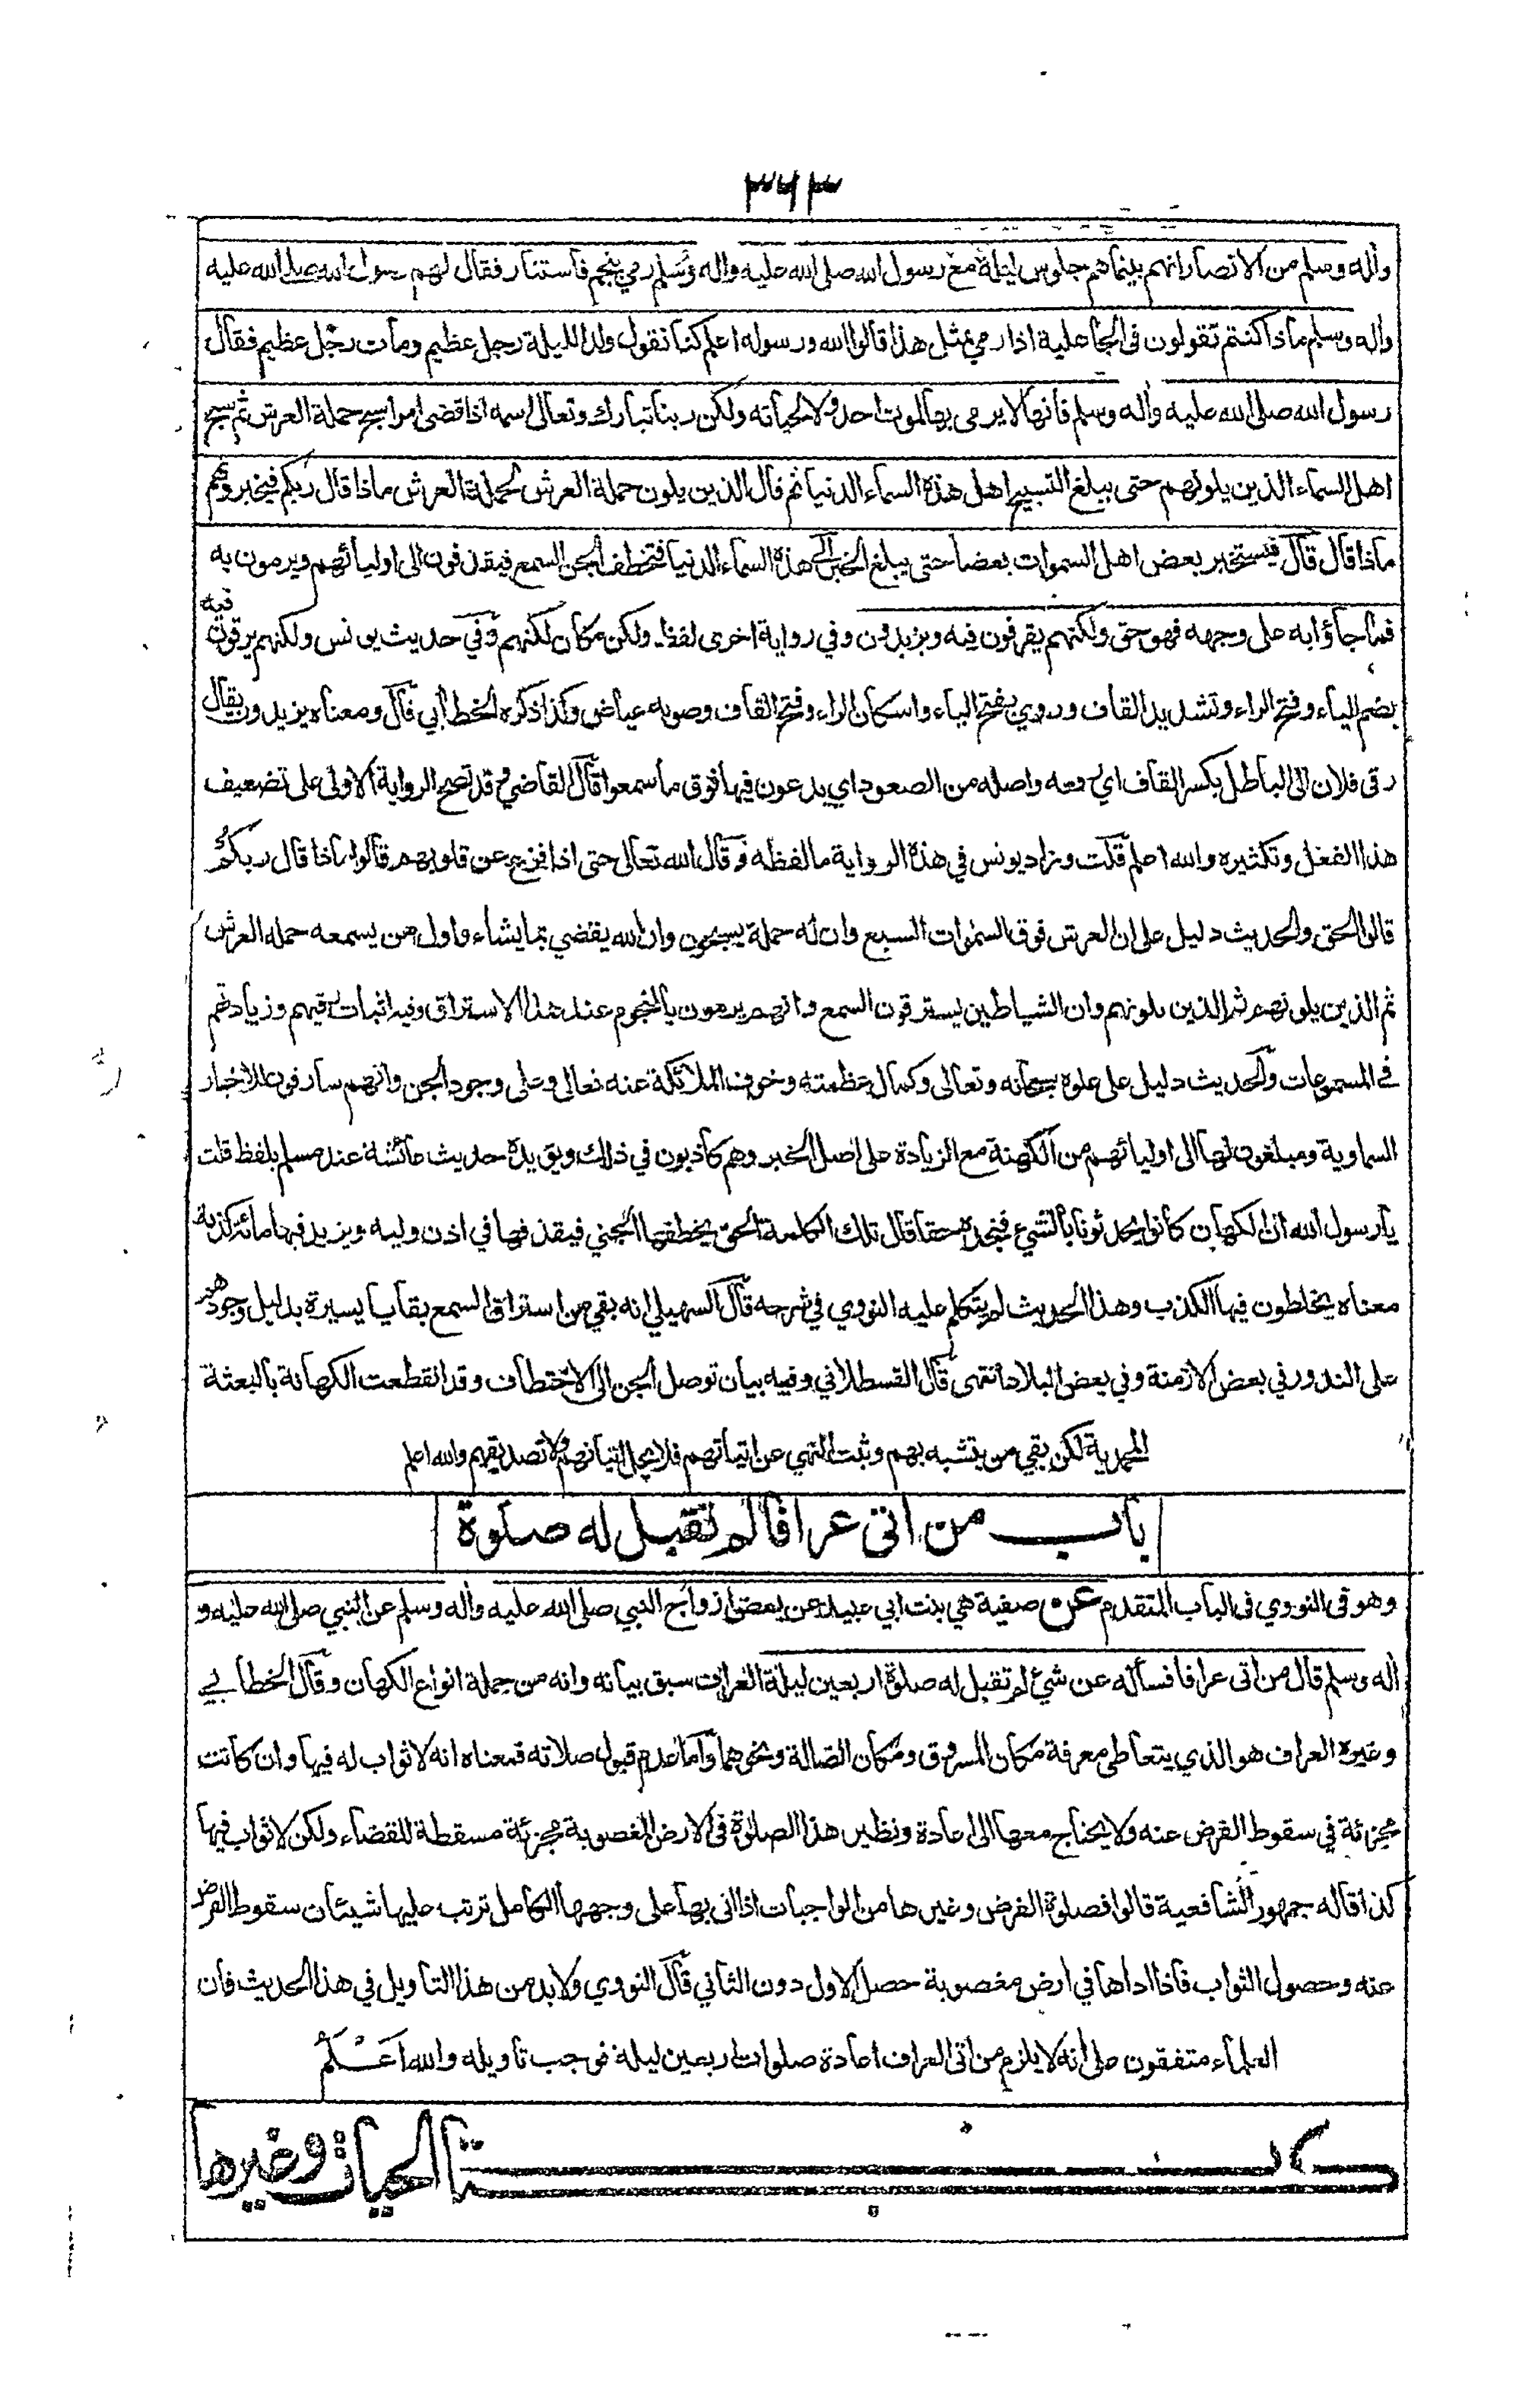 ٣٦٣
وأله وسلم من الانصار انهم بينما هم جلوس ليلة مع رسول الله صلى الله عليه واله وسلم رمي بنجم فاستنار فقال لهم رسول الله صلى الله عليه
وأله وسلم ماذا كنتم تقولون فى الجاهلية اذا رمي بمثل هذا قالوا الله ورسوله اعلم كنا نقول ولد الليلة رجل عظيم ومات رجل عظيم فقال
رسول الله صلى الله عليه وأله وسلم فانها لا يرمى بها لموت احد ولا لحياته ولكن ربنا تبارك وتعالى اسمه اذا قضى امرا سبح حملة العرش ثم سبح
اهل السماء الذين يلونهم حتى يبلغ التسبيح اهل هذه السماء الدنيا ثم قال الذين يلون حملة العرش لحملة العرش ماذا قال ربكم فيخبرونهم
ماذا قال قال فيستخبر بعض اهل السموات بعضا حتى يبلغ الخبر الى هذه السماء الدنيا فتخطف الجن السمع فيقذفون الى اوليائهم ويرمون به
فما جاؤا به على وجهه فهو حق ولكنهم يقرفون فيه ويزيدون وفي رواية اخرى لفظ ولكن مكان لكنهم وفي حديث يونس ولكنهم يرقون فيه
بضم الياء وفتح الراء وتشديد القاف وروي بفتح الياء واسكان الراء وفتح القاف وصوبه عياض وكذا ذكره الخطابي قال ومعناه يزيدون يقال
رقى فلان الى الباطل بكسر القاف اي رفعه واصله من الصعود اي يدعون فيها فوق ما سمعوا قال القاضي وقد تصح الرواية الاولى على تضعيف
هذا الفعل وتكثيره والله اعلم قلت وزاد يونس في هذه الرواية ما لفظه وقال الله تعالى حتى اذا فزع عن قلوبهم قالوا ماذا قال ربكم
قالوا الحق والحديث دليل على ان العرش فوق السموات السبع وان له حملة يسبحون وان الله يقضي بما يشاء واول من يسمعه حمله العرش
ثم الذين يلونهم ثم الذين يلونهم وان الشياطين يسترقون السمع وانهم يرمون بالنجوم عند هذا الاستراق وفيه اثبات رقيهم وزيادتهم
في المسموعات والحديث دليل على علوه سبحانه وتعالى وكمال عظمته وخوف الملائكة عنه تعالى وعلى وجود الجن وانهم سارقون للاخبار
السماوية ومبلغون لها الى اوليائهم من الكهنة مع الزيادة على اصل الخبر وهم كاذبون في ذلك ويؤيده حديث عائشة عند مسلم بلفظ قلت
يا رسول الله ان الكهان كانوا يحدثونا بالشيء فنجده حقا قال تلك الكلمة الحق يخطفها الجني فيقذفها في اذن وليه ويزيد فيها مائة كذبة
معناه يخلطون فيها الكذب وهذا الحديث لم يتكلم عليه النووي في شرحه قال السهيلي انه بقي من استراق السمع بقايا يسيرة بدليل وجودهم
على الندور في بعض الازمنة وفي بعض البلاد انتهى قال القسطلاني وفيه بيان توصل الجن الى الاختطاف وقد انقطعت الكهانة بالبعثة
المحمدية لكن بقي من يتشبه بهم وثبت النهي عن اتيانهم فلا يحل اتيانهم ولا تصديقهم والله اعلم
باب من اتى عرافا لم تقبل له صلوة
وهو فى النووي فى الباب المتقدم عن صفية هي بنت ابي عبيد عن بعض ازواج النبي صلى الله عليه وأله وسلم عن النبي صلى الله عليه و
أله وسلم قال من اتى عرافا فسأله عن شئ لم تقبل له صلوة اربعين ليلة العراف سبق بيانه وانه من جملة انواع الكهان وقال الخطابي
وغيره العراف هو الذي يتعاطى معرفة مكان المسروق ومكان الضالة ونحوهما واما عدم قبول صلاته فمعناه انه لا ثواب له فيها وان كانت
مجزئة في سقوط الفرض عنه ولا يحتاج معها الى اعادة ونظير هذا الصلوة فى الارض المغصوبة مجزئة مسقطة للقضاء ولكن لا ثواب فيها
كذا قاله جمهور الشافعية قالوا فصلوة الفرض وغيرها من الواجبات اذا اتى بها على وجهها الكامل ترتب عليها شيئان سقوط الفرض
عنه وحصول الثواب فاذا اداها في ارض مغصوبة حصل الاول دون الثاني قال النووي ولا بد من هذا التاويل في هذا الحديث فان
العلماء متفقون على انه لا يلزم من اتى العراف اعادة صلوات اربعين ليلة فوجب تاويله والله اعلم
كتاب الحيات وغيرها